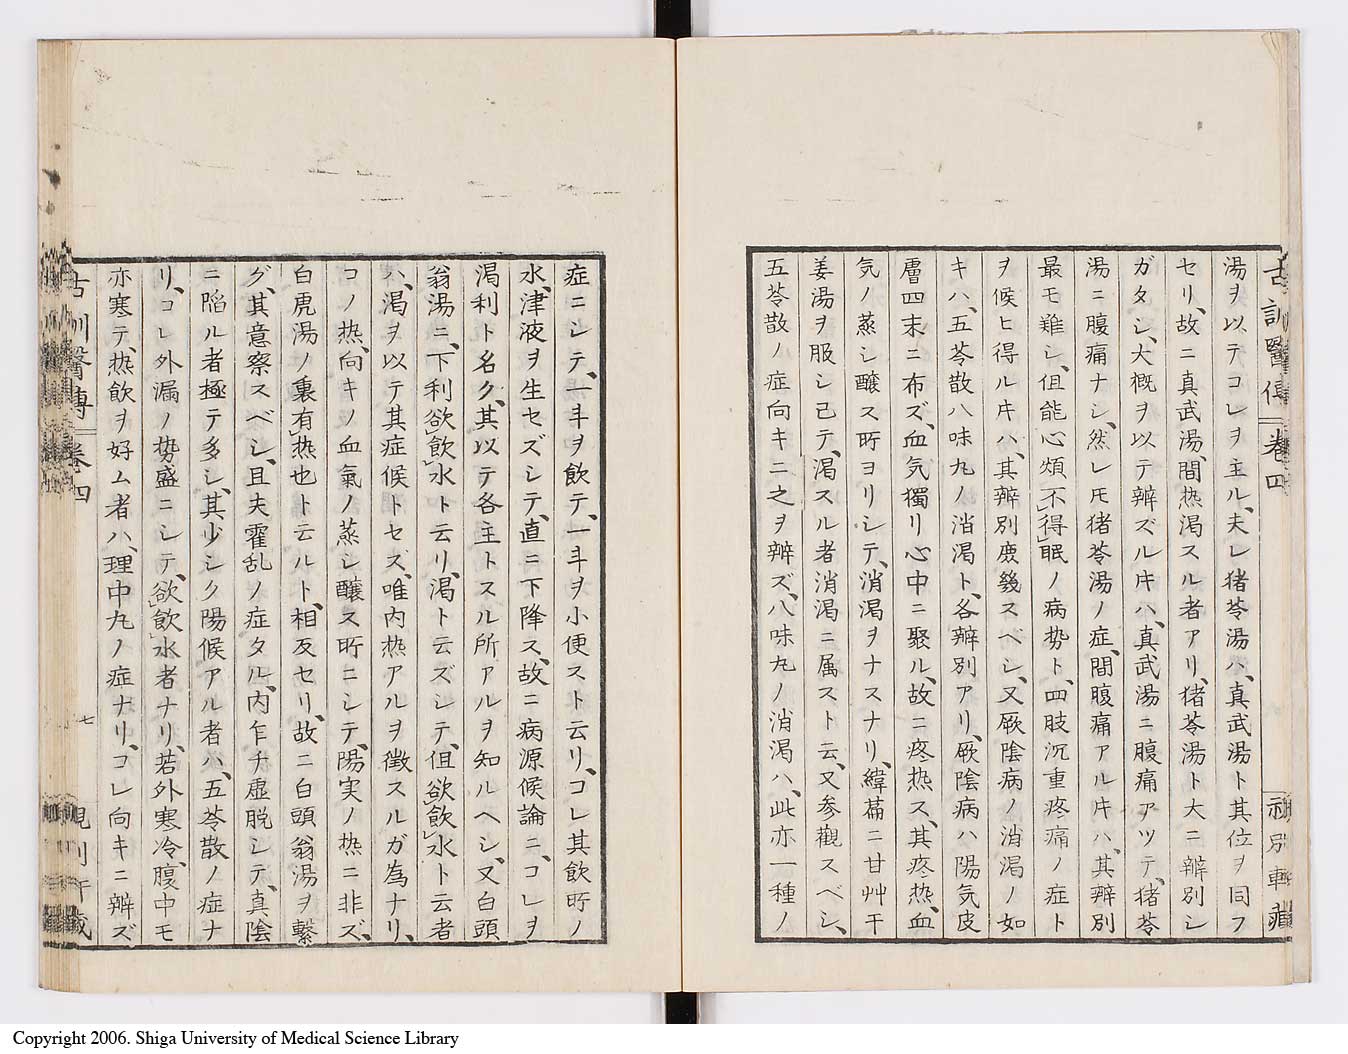 古訓醫傳 卷四
湯ヲ以テコレヲ主ル、夫レ猪苓湯ハ、真武湯ト其位ヲ同フ
セリ、故ニ真武湯、間热渇スル者アリ、猪苓湯ト大ニ辨別シ
ガタシ、大概ヲ以テ辨ズルキハ、真武湯ニ腹痛アツテ、猪苓
湯ニ腹痛ナシ、然レ𪜈猪苓湯ノ症、間腹痛アルキハ、其辨別
最モ難シ、但能心煩「不得」眠ノ病势ト、四肢沉重疼痛ノ症ト
ヲ候ヒ得ルキハ、其辨別庻幾スベシ、又厥陰病ノ消渇ノ如
キハ、五苓散八味丸ノ消渇ト、各辨別アリ、厥陰病ハ陽気皮
膚四末ニ布ズ、血気獨リ心中ニ聚ル、故ニ疼热ス、其疼热、血
気ノ蒸シ醸ス所ヨリシテ、消渇ヲナスナリ、緯萹ニ甘艸干
姜湯ヲ服シ已テ、渇スル者消渇ニ属スト云、又参觀スベシ、
五苓散ノ症向キニ之ヲ辨ズ、八味丸ノ消渇ハ、此亦一種ノ
症ニシテ、一斗ヲ飲テ、一斗ヲ小便スト云リ、コレ其飲所ノ
水、津液ヲ生セズシテ、直ニ下降ス、故ニ病源候論ニ、コレヲ
渇利ト名ク、其以テ各主トスル所アルヲ知ルヘシ、又白頭
翁湯ニ、下利欲「飲」水ト云リ、渇ト云ズシテ、但欲「飲」水ト云者
ハ、渇ヲ以テ其症候トセズ、唯内热アルヲ徴スルガ為ナリ、
コノ热、向キノ血氣ノ蒸シ醸ス所ニシテ、陽実ノ热ニ非ズ、
白虎湯ノ裏有「热也ト云ルト、相反セリ、故ニ白頭翁湯ヲ繫
グ、其意察スベシ、且夫霍乱ノ症タル、内乍チ虚脱シテ、真陰
ニ陷ル者極テ多シ、其少シク陽候アル者ハ、五苓散ノ症ナ
リ、コレ外漏ノ势盛ニシテ、欲「飲」水者ナリ、若外寒冷、腹中モ
亦寒テ、热飲ヲ好ム者ハ、理中丸ノ症ナリ、コレ向キニ辨ズ
古訓醫傳 卷四
七
Copyright 2006. Shiga University of Medical Science Library